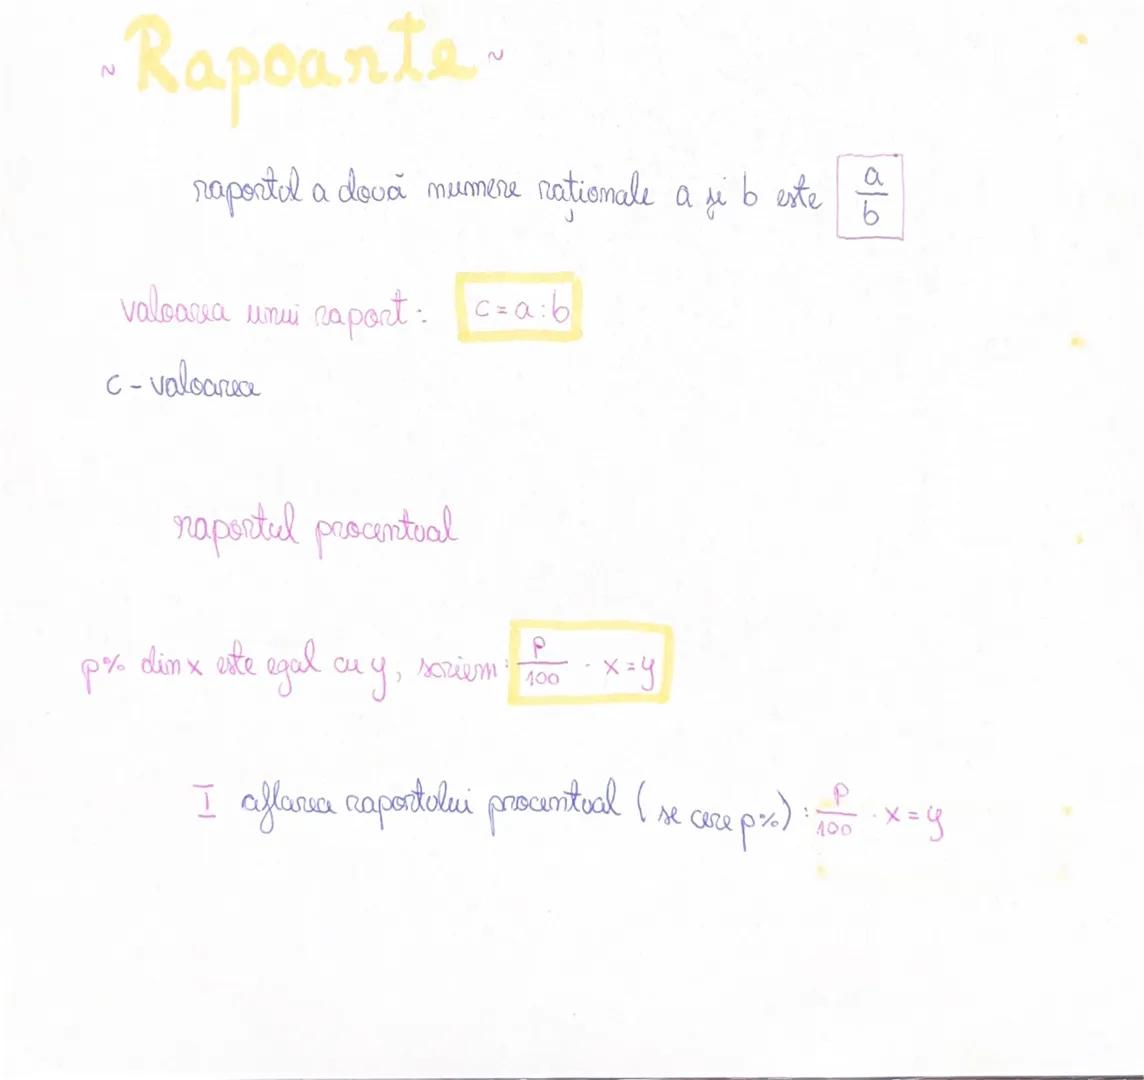 ~ Rapoarte ~
raportul a două numere raționale a și b este a/b
valoarea unui raport: c = a : b
c - valoarea
raportul procentual
p% din x este egal cu y, scriem: p/100 · x = y
I aflarea raportului procentual (se cere p%) : p/100 · x = y